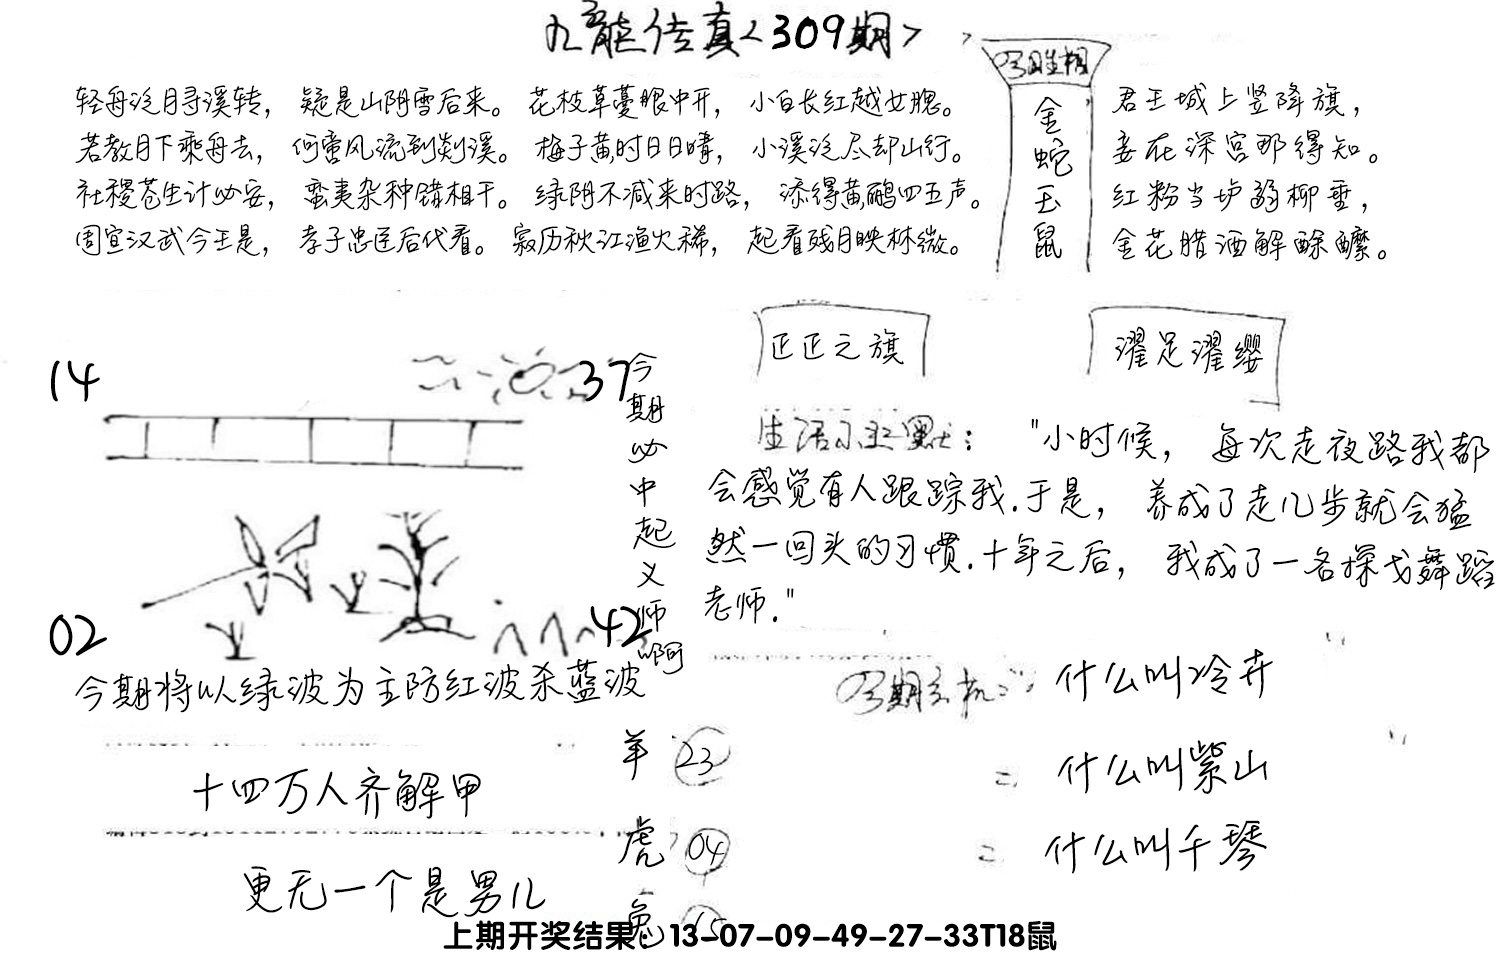 九龙传真<309期>
今期生相
轻舟泛月寻溪转，疑是山阴雪后来。花枝草蔓眼中开，小白长红越女腮。
若教月下乘舟去，何啻风流到剡溪。梅子黄时日日晴，小溪泛尽却山行。
社稷苍生计必安，蛮夷杂种错相干。绿阴不减来时路，添得黄鹂四五声。
周宣汉武今王是，孝子忠臣后代看。寂历秋江渔火稀，起看残月映林微。
金蛇玉鼠
君王城上竖降旗，
妾在深宫那得知。
红粉当垆弱柳垂，
金花腊酒解酴醾。
正正之旗
濯足濯缨
14
37
02
42
今期必中起义师啊
今期将以绿波为主防红波杀蓝波
生活小幽默："小时候，每次走夜路我都
会感觉有人跟踪我.于是，养成了走几步就会猛
然一回头的习惯.十年之后，我成了一名探戈舞蹈
老师."
今期玄机：什么叫冷卉
什么叫紫山
什么叫千琴
十四万人齐解甲
更无一个是男儿
羊 23
虎 04
兔 15
上期开奖结果：13-07-09-49-27-33T18鼠